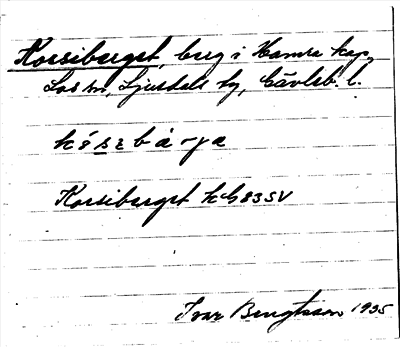 Korsiberget, berg i Hamra kap,
Los sn, Ljusdals tg, Gävleb. l.
Korsiberget hG83SV
Ivar Bengtsson 1935